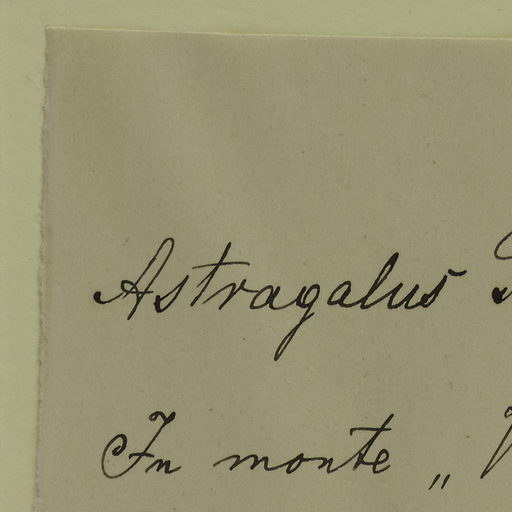 Astragalus
In monte „